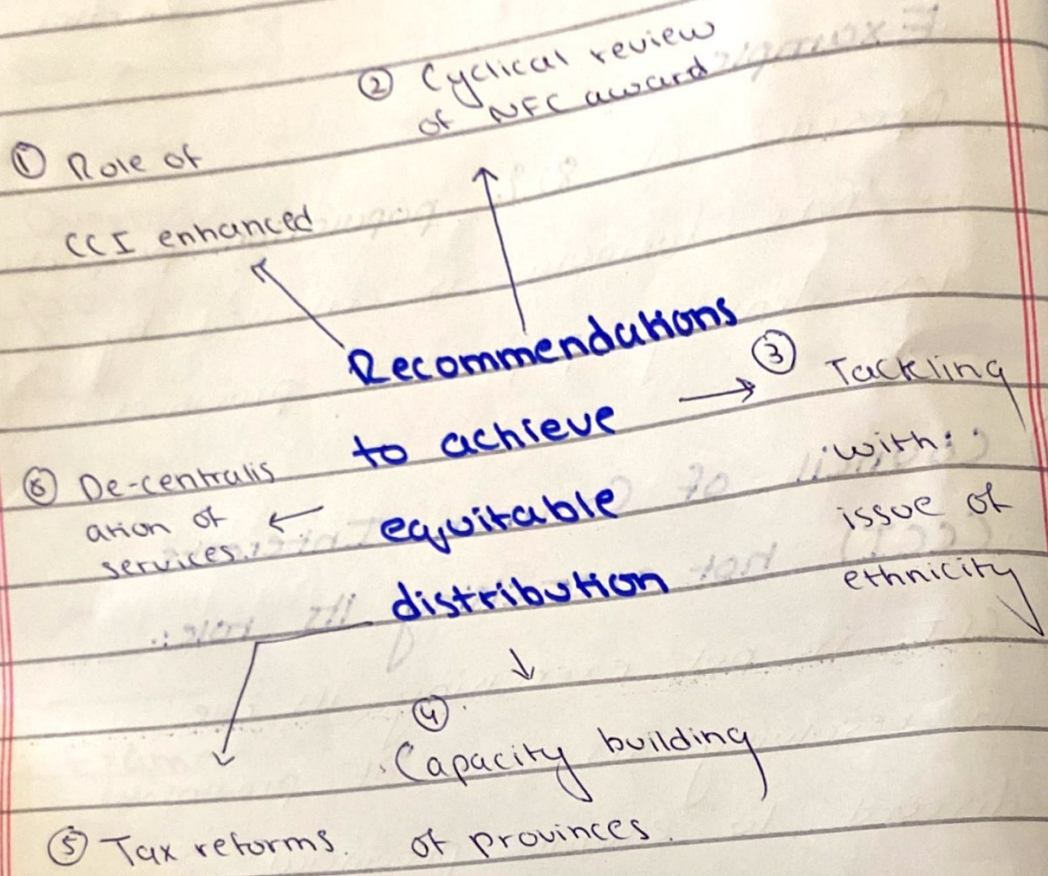 ② Cyclical review
of NFC award
① Role of
CCI enhanced
Recommendations
to achieve
equitable
distribution
③ Tackling
with
issue of
ethnicity
④
Capacity building
of provinces.
⑤ Tax reforms.
⑥ De-centralis
ation of
services.